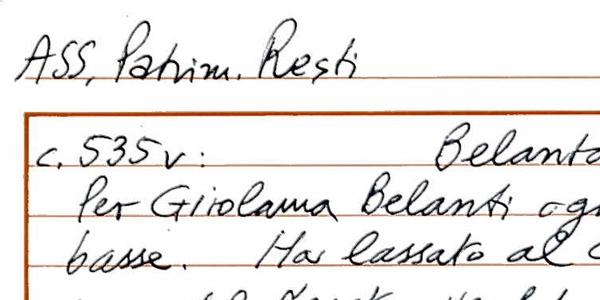 ASS, Patrim. Resti
c. 535v: Belanti
Per Girolama Belanti
basse. Ha lassato al